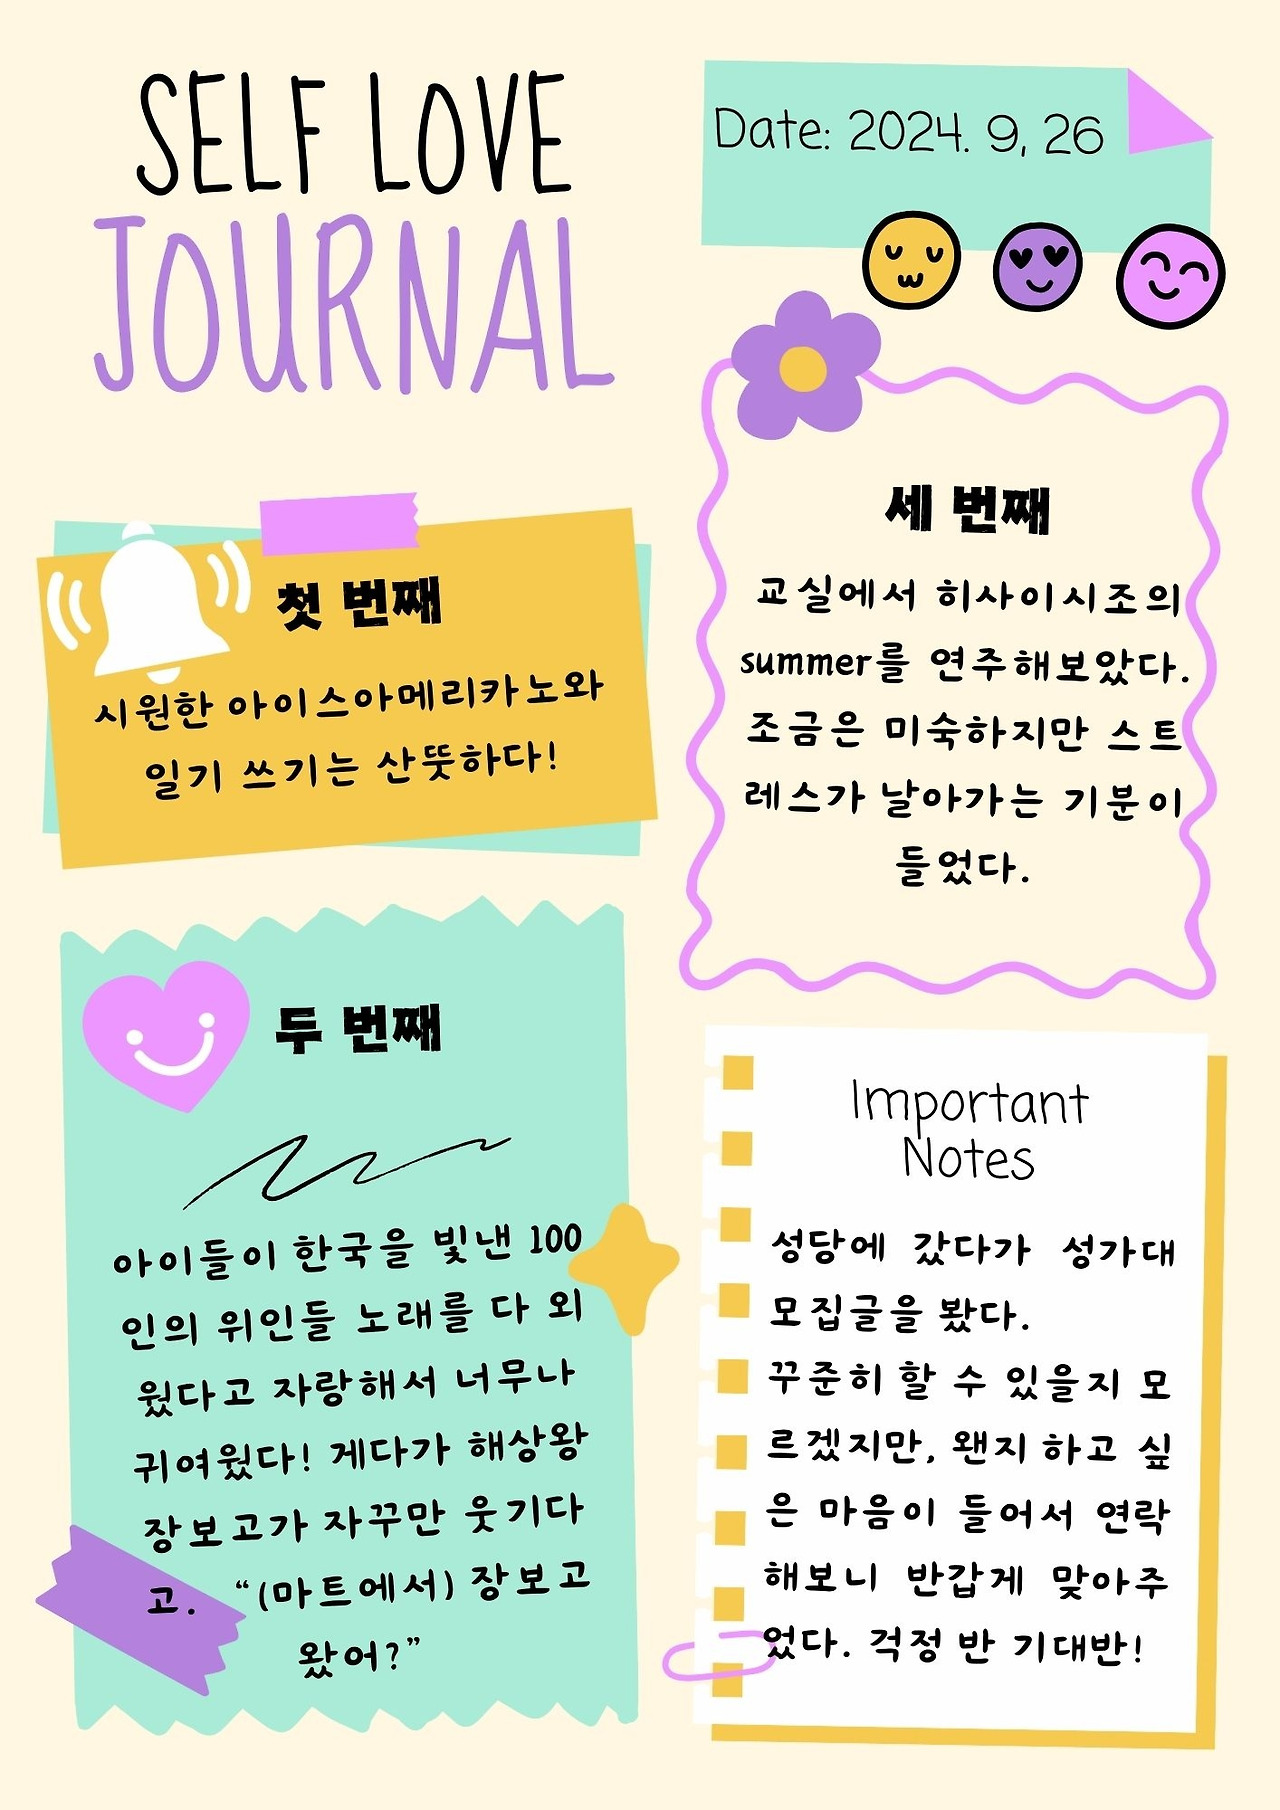 SELF LOVE
JOURNAL
Date: 2024. 9, 26
첫 번째
시원한 아이스아메리카노와
일기 쓰기는 산뜻하다!
두 번째
아이들이 한국을 빛낸 100
인의 위인들 노래를 다 외
웠다고 자랑해서 너무나
귀여웠다! 게다가 해상왕
장보고가 자꾸만 웃기다
고. “(마트에서) 장보고
왔어?”
세 번째
교실에서 히사이시조의
summer를 연주해보았다.
조금은 미숙하지만 스트
레스가 날아가는 기분이
들었다.
Important
Notes
성당에 갔다가 성가대
모집글을 봤다.
꾸준히 할 수 있을지 모
르겠지만, 왠지 하고 싶
은 마음이 들어서 연락
해보니 반갑게 맞아주
었다. 걱정 반 기대반!